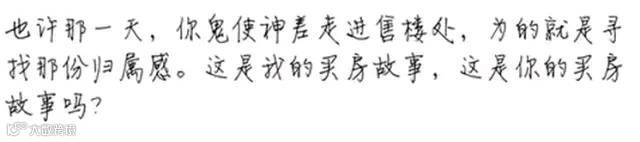 也许那一天，你鬼使神差走进售楼处，为的就是寻
找那份归属感。这是我的买房故事，这是你的买房
故事吗？